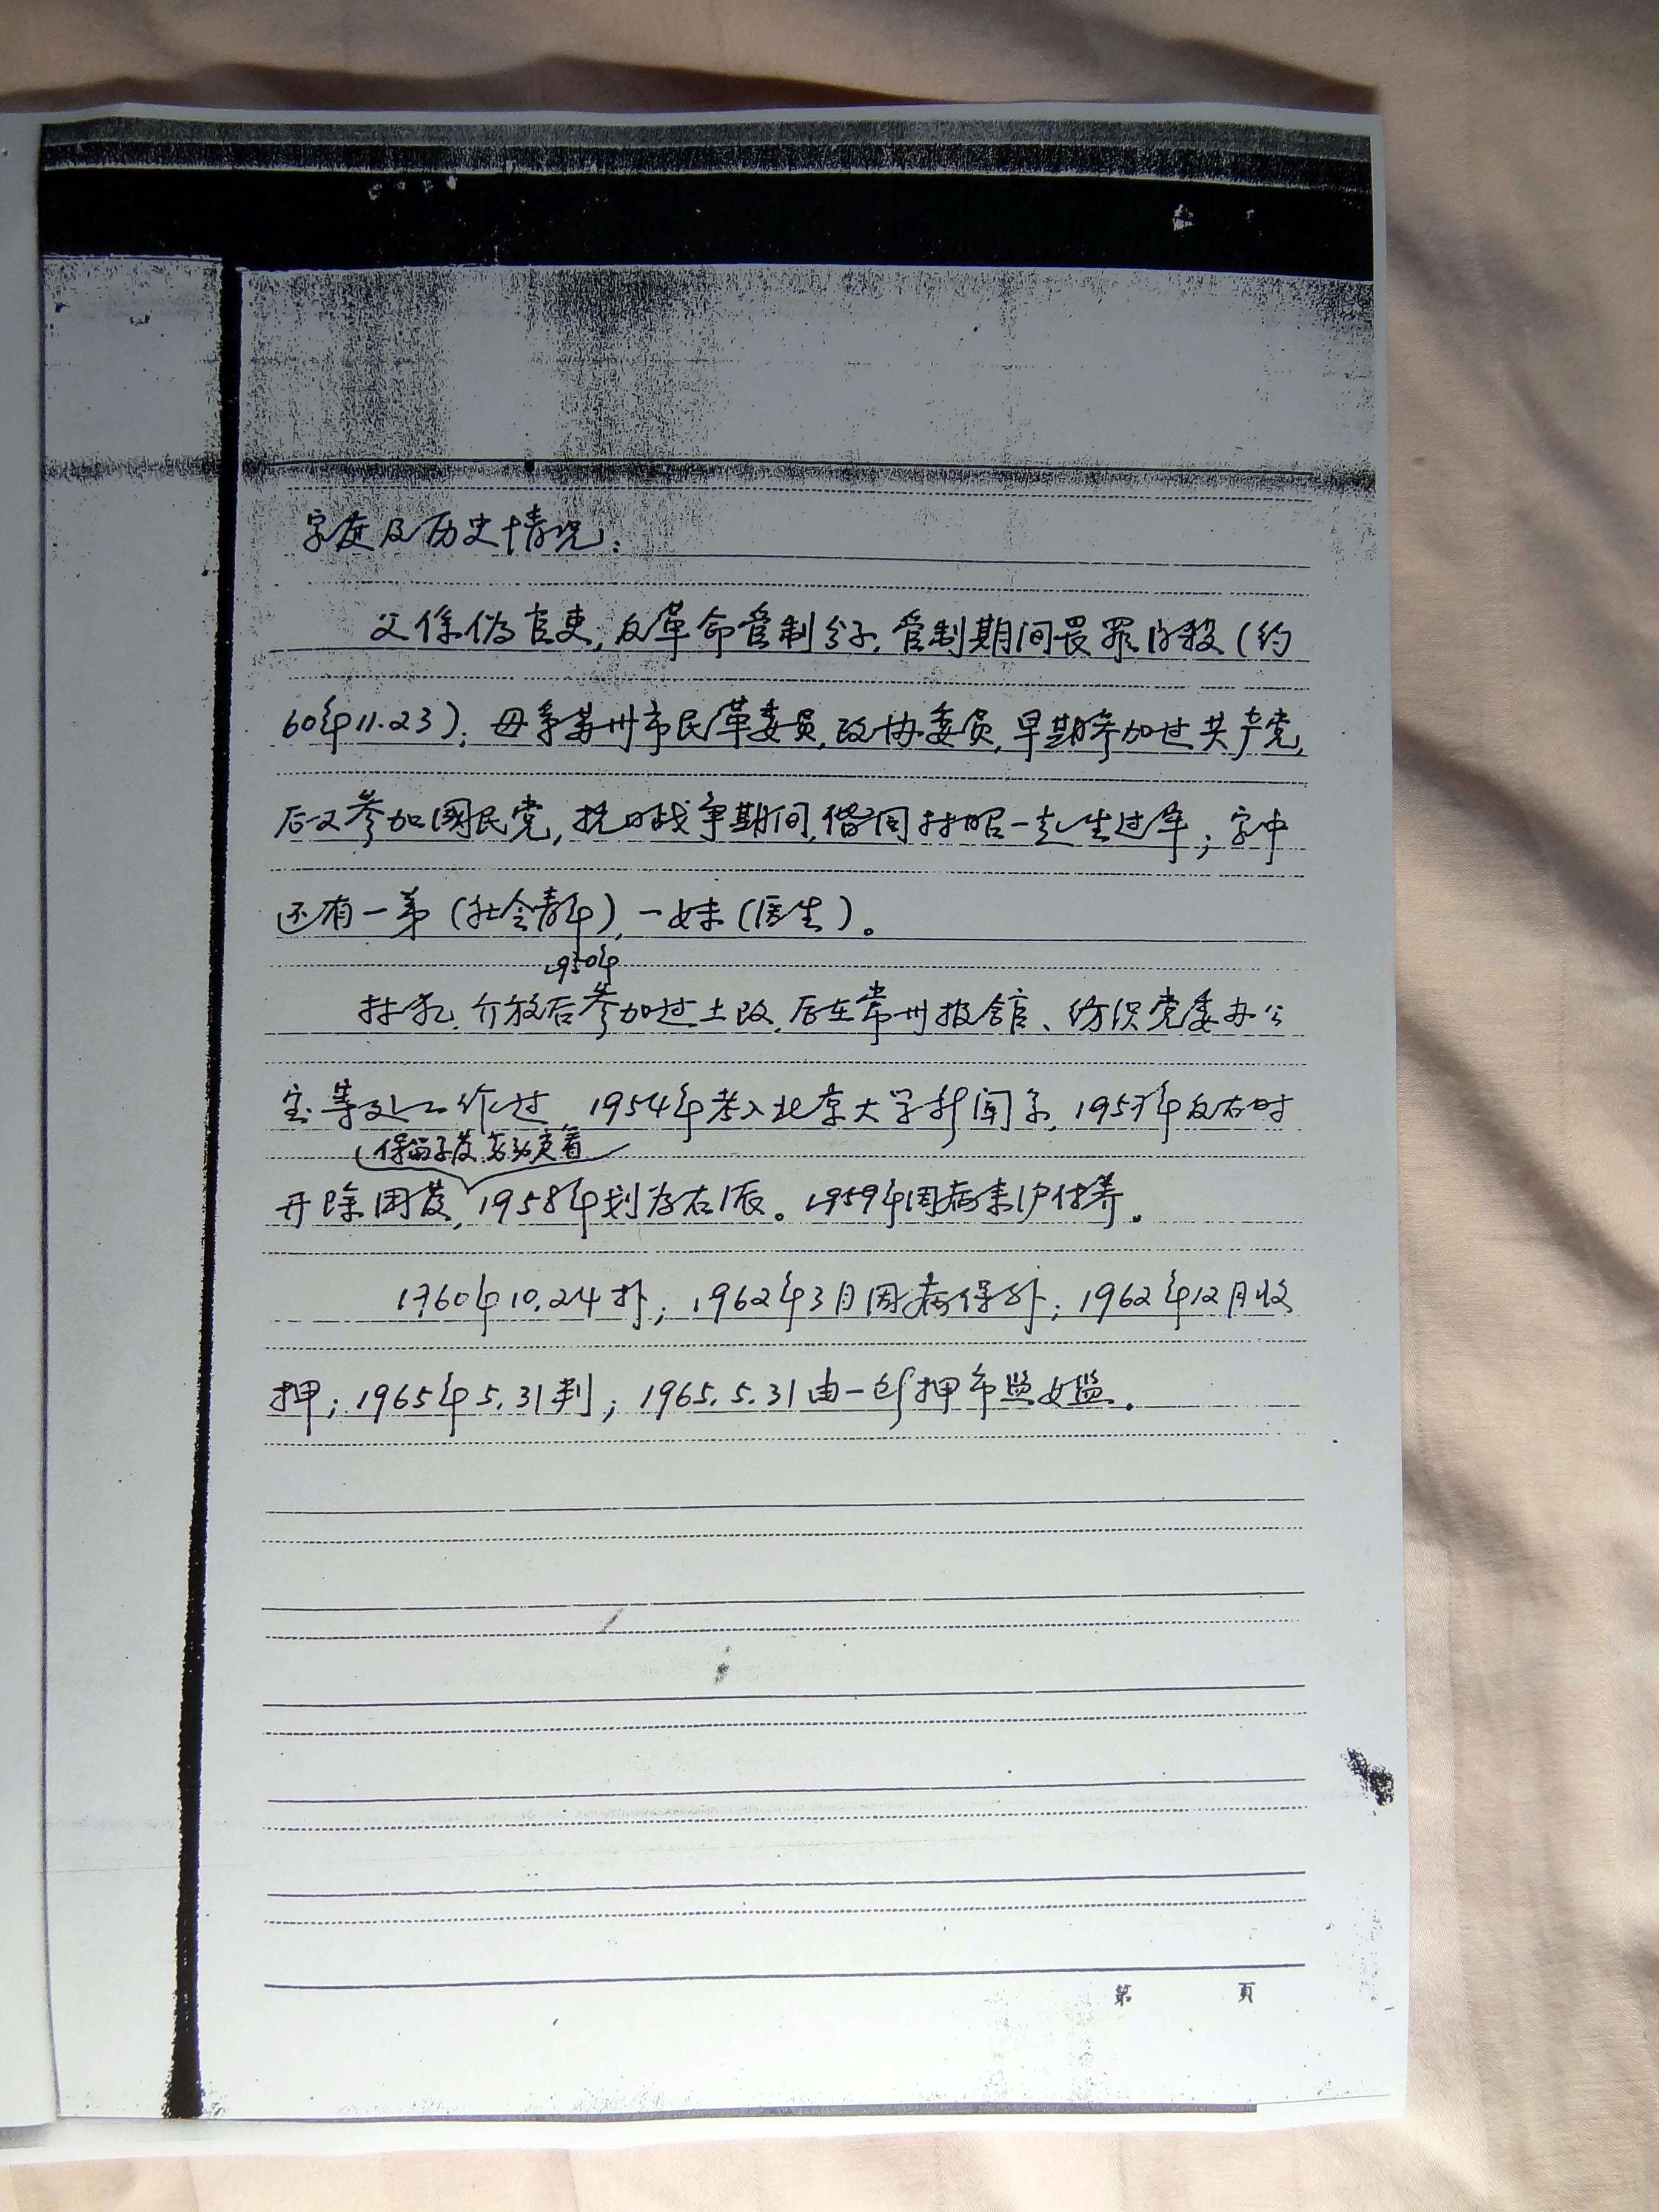 家庭及历史情况：
父係伪官吏，反革命管制分子，管制期间畏罪自殺（约
60年11.23）；母系苏州市民革委员，政协委员，早期参加过共产党，
后又参加國民党，抗日战争期间，偕同林昭一起坐过牢；家中
还有一弟（社会青年），一妹（医生）。
1950年
林犯，介放后参加过土改，后在常州报舘、纺织党委办公
室等处工作过 1954年考入北京大学新闻系，1957年反右时
（保留学苂，劳动考查
开除团苂，1958年划为右派。1959年因病来沪休养。
1960年10.24扑；1962年3月因病保外；1962年12月收
押；1965年5.31判；1965.5.31由一所押市监女监。
第 頁